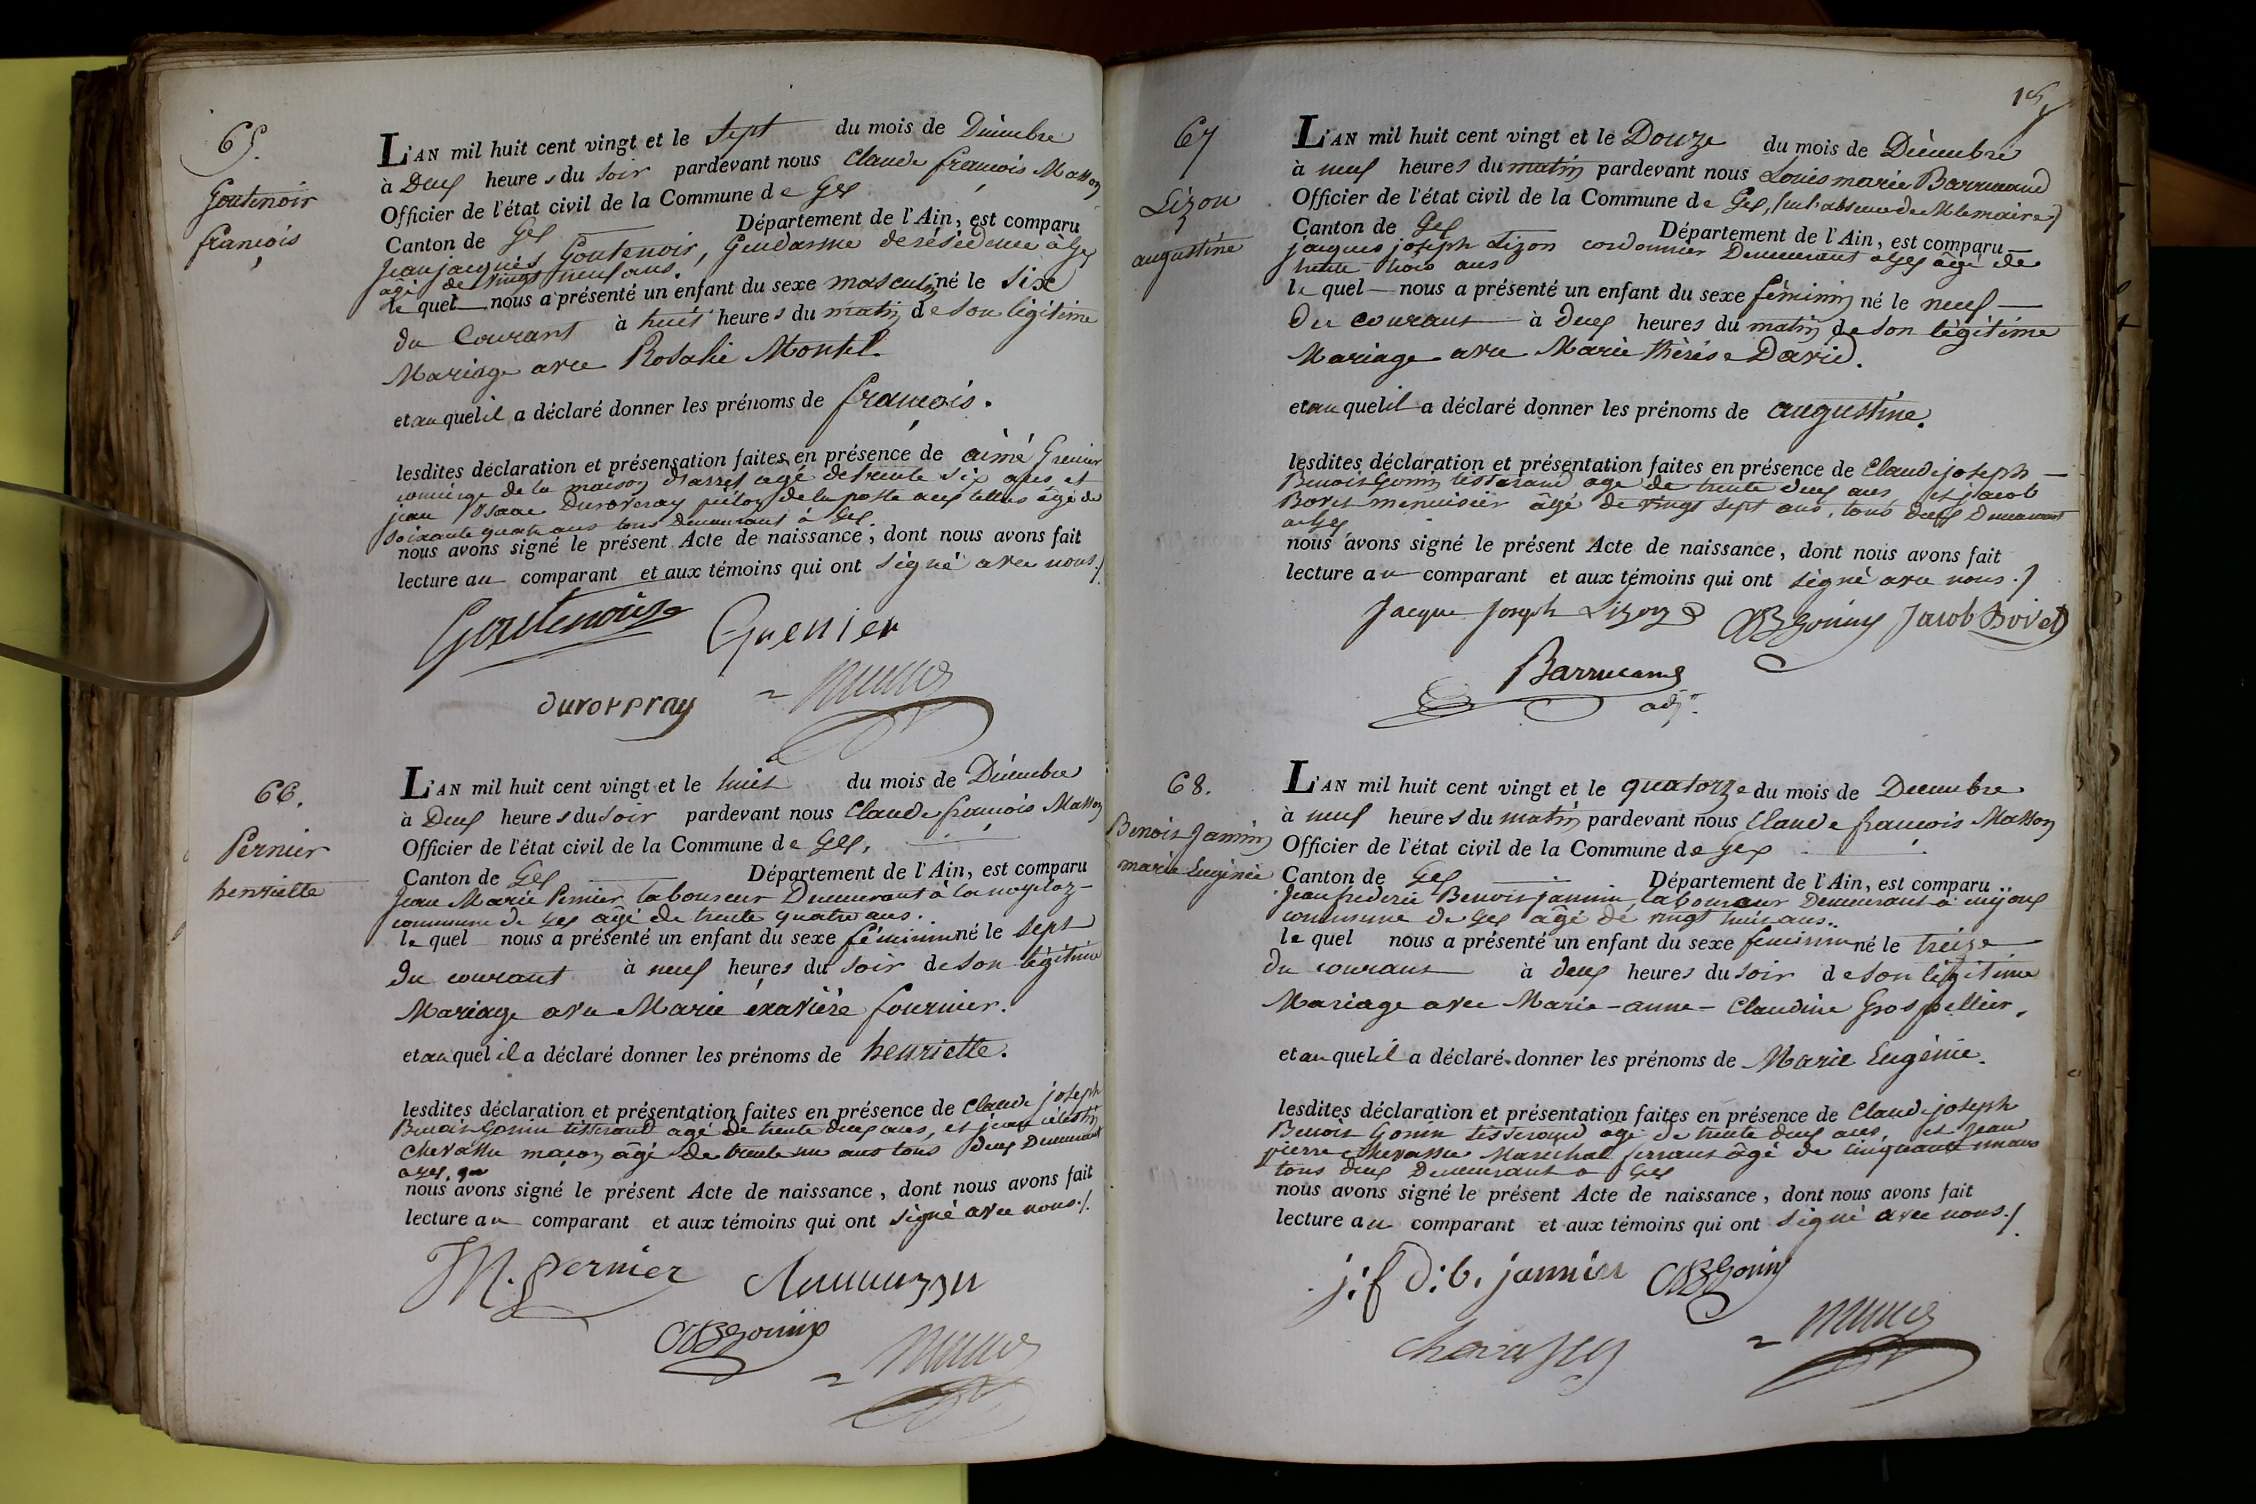 65.
Goutenoir
francois
L'AN mil huit cent vingt et le sept du mois de Décembre
à Deux heures du soir pardevant nous Claude francois Masson
Officier de l'état civil de la Commune de Gex
Canton de Gex Département de l'Ain, est comparu
Jean jacques Goutenoir, Gendarme de résidence à Gex
agé de vingt neuf ans.
le quel nous a présenté un enfant du sexe masculin né le six
du Courant à huit heures du matin de son légitime
Mariage avec Rosalie Montel.
et au quel il a déclaré donner les prénoms de francois.
lesdites déclaration et présensation faites en présence de aimé Grenier
concierge de la maison d'arret agé de trente six ans, et
jean isaac Duroveray piéton de la poste aux lettres âgé de
soixante quatre ans tous Demeurant à Gex.
nous avons signé le présent Acte de naissance, dont nous avons fait
lecture au comparant et aux témoins qui ont signé avec nous./.
Goutenoir Grenier
duroveray
66.
Pernier
henriette
L'AN mil huit cent vingt et le huit du mois de Décembre
à Deux heures du soir pardevant nous Claude francois Masson
Officier de l'état civil de la Commune de Gex,
Canton de Gex Département de l'Ain, est comparu
Jean Marie Pernier laboureur Demeurant à
commune de Gex âgé de trente quatre ans.
le quel nous a présenté un enfant du sexe féminin né le sept
du courant à neuf heures du soir de son légitime
Mariage avec Marie éxavière fournier.
et au quel il a déclaré donner les prénoms de henriette.
lesdites déclaration et présentation faites en présence de Claude joseph
Benoit Gonin tisserand agé de trente deux ans, et jean célestin
chevassu maçon âgé de trente un ans tous deux Demeurant
a Gex,
nous avons signé le présent Acte de naissance, dont nous avons fait
lecture au comparant et aux témoins qui ont signé avec nous./.
M. Pernier
CJBGonin
67
Lizon
augustine
L'AN mil huit cent vingt et le Douze du mois de Décembre
à neuf heures du matin pardevant nous Louis marie Barrucand
Officier de l'état civil de la Commune de Gex, (en l'absence de M. le maire)
Canton de Gex Département de l'Ain, est comparu
jacques joseph Lizon cordonnier Demeurant a Gex âgé de
trente trois ans
le quel nous a présenté un enfant du sexe féminin né le neuf
du courant à deux heures du matin de son légitime
Mariage avec Marie thérèse David.
et au quel il a déclaré donner les prénoms de augustine.
lesdites déclaration et présentation faites en présence de Claude joseph
Benoit Gonin tisserand agé de trente deux ans, et jacob
Bovet menuisier âgé de vingt sept ans, tous deux Demeurant
a Gex,
nous avons signé le présent Acte de naissance, dont nous avons fait
lecture au comparant et aux témoins qui ont signé avec nous./
Jacque Joseph Lizon CJBGonin Jacob Bovet
Barrucand
adjt.
68.
Benoit Jannin
marie Eugénie
L'AN mil huit cent vingt et le quatorze du mois de Decembre
à neuf heures du matin pardevant nous Claude francois Masson
Officier de l'état civil de la Commune de Gex
Canton de Gex Département de l'Ain, est comparu
Jean frederic Benoit jannin, laboureur Demeurant à mijoux
commune de Gex âgé de vingt huit ans.
le quel nous a présenté un enfant du sexe feminin né le treize
du courant à deux heures du soir de son légitime
Mariage avec Marie-anne-Claudine Grospellier,
et au quel il a déclaré donner les prénoms de Marie Eugénie.
lesdites déclaration et présentation faites en présence de Claude joseph
Benoit Gonin tisserand agé de trente deux ans, et Jean
pierre chevassu Marechal ferrant âgé de cinquante un ans
tous deux Demeurant a Gex
nous avons signé le présent Acte de naissance, dont nous avons fait
lecture au comparant et aux témoins qui ont signé avec nous./.
j: f D: b. jannin CJBGonin
chevassu